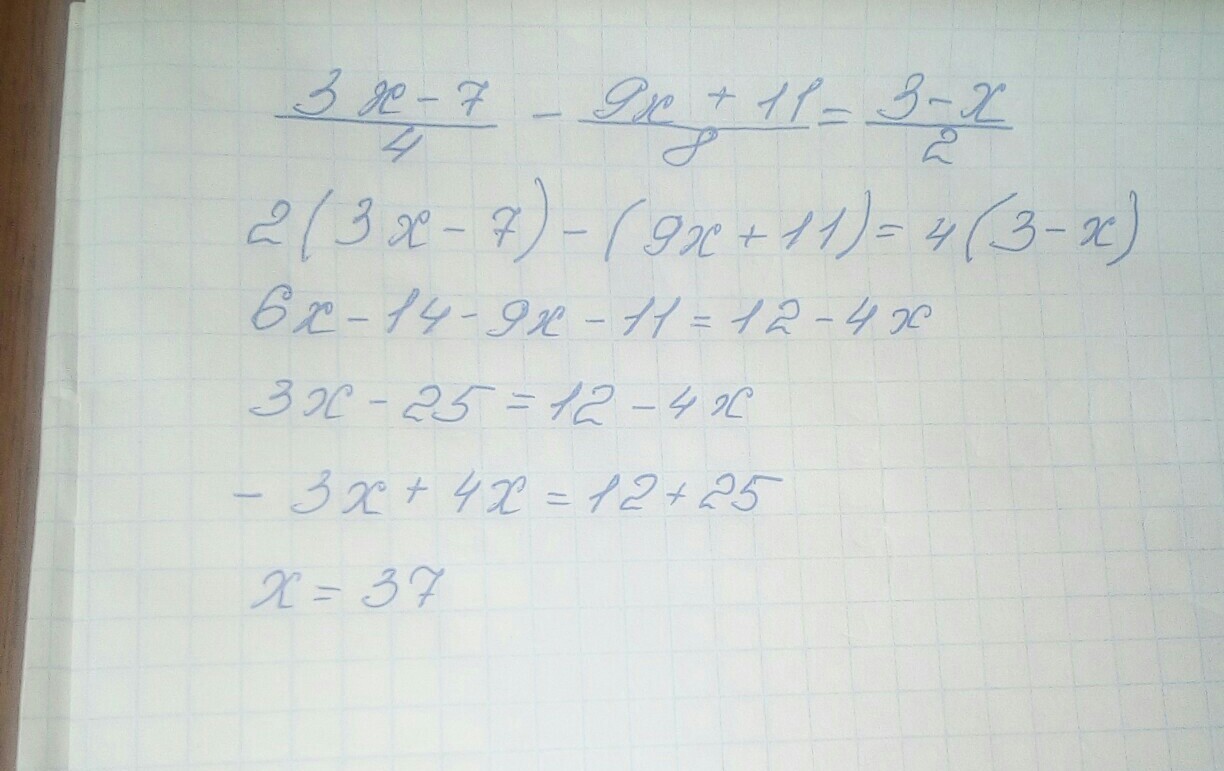 (3x-7)/4 - (9x+11)/8 = (3-x)/2
2(3x-7)-(9x+11)=4(3-x)
6x-14-9x-11=12-4x
3x-25=12-4x
-3x+4x=12+25
x=37